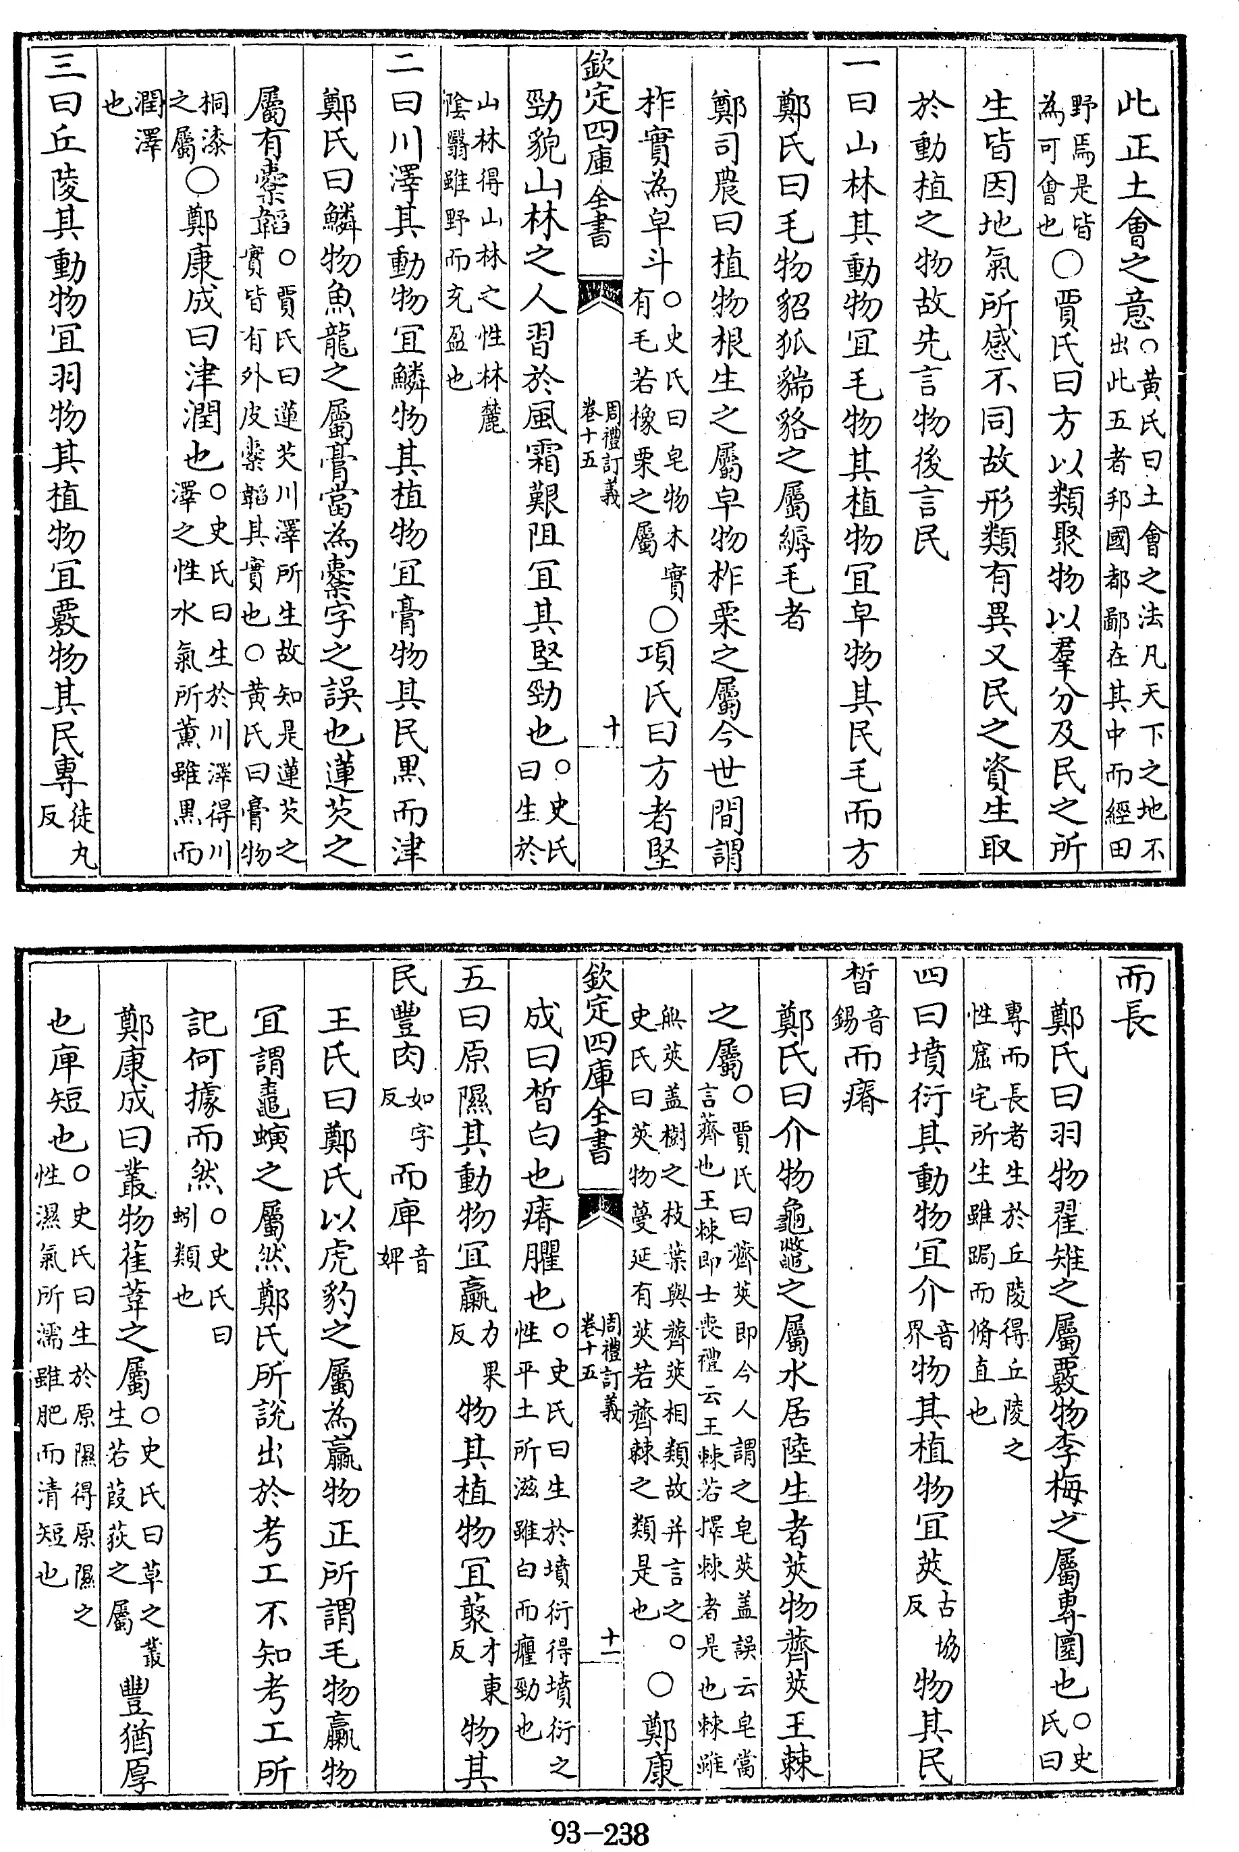 此正土會之意○黄氏曰土會之法凡天下之地不出此五者邦國都鄙在其中而經田
野焉是皆為可會也○賈氏曰方以類聚物以羣分及民之所
生皆因地氣所感不同故形類有異又民之資生取
於動植之物故先言物後言民
一曰山林其動物宜毛物其植物宜皁物其民毛而方
鄭氏曰毛物貂狐貒貉之屬縟毛者
鄭司農曰植物根生之屬皁物柞栗之屬今世間謂
柞實為皁斗○史氏曰皂物木實有毛若橡栗之屬○項氏曰方者堅
欽定四庫全書
周禮訂義
卷十五
十
勁貌山林之人習於風霜艱阻宜其堅勁也○史氏曰生於
山林得山林之性林麓陰翳雖野而充盈也
二曰川澤其動物宜鱗物其植物宜膏物其民黑而津
鄭氏曰鱗物魚龍之屬膏當為櫜字之誤也蓮芡之
屬有櫜韜○賈氏曰蓮芡川澤所生故知是蓮芡之實皆有外皮櫜韜其實也○黄氏曰膏物
桐漆之屬○鄭康成曰津潤也○史氏曰生於川澤得川澤之性水氣所薰雖黑而
潤澤也
三曰丘陵其動物宜羽物其植物宜覈物其民專徒丸反
而長
鄭氏曰羽物翟雉之屬覈物李梅之屬專圜也○史氏曰
專而長者生於丘陵得丘陵之性窟宅所生雖跼而脩直也
四曰墳衍其動物宜介音界物其植物宜莢古協反物其民
晳音錫而瘠
鄭氏曰介物龜鼈之屬水居陸生者莢物薺莢王棘
之屬○賈氏曰薺莢即今人謂之皂莢蓋誤云皂當言薺也王棘即士喪禮云王棘若擇棘者是也棘雖
無莢蓋樹之枝葉與薺莢相類故并言之○史氏曰莢物蔓延有莢若薺棘之類是也○鄭康
欽定四庫全書
周禮訂義
卷十五
十一
成曰晳白也瘠臞也○史氏曰生於墳衍得墳衍之性平土所滋雖白而癯勁也
五曰原隰其動物宜臝力果反物其植物宜藂才東反物其
民豐肉如字反而庳音婢
王氏曰鄭氏以虎豹之屬為臝物正所謂毛物臝物
宜謂鼃螾之屬然鄭氏所說出於考工不知考工所
記何據而然○史氏曰蚓類也
鄭康成曰叢物萑葦之屬○史氏曰草之叢生若葭荻之屬豐猶厚
也庳短也○史氏曰生於原隰得原隰之性濕氣所濡雖肥而清短也
93-238